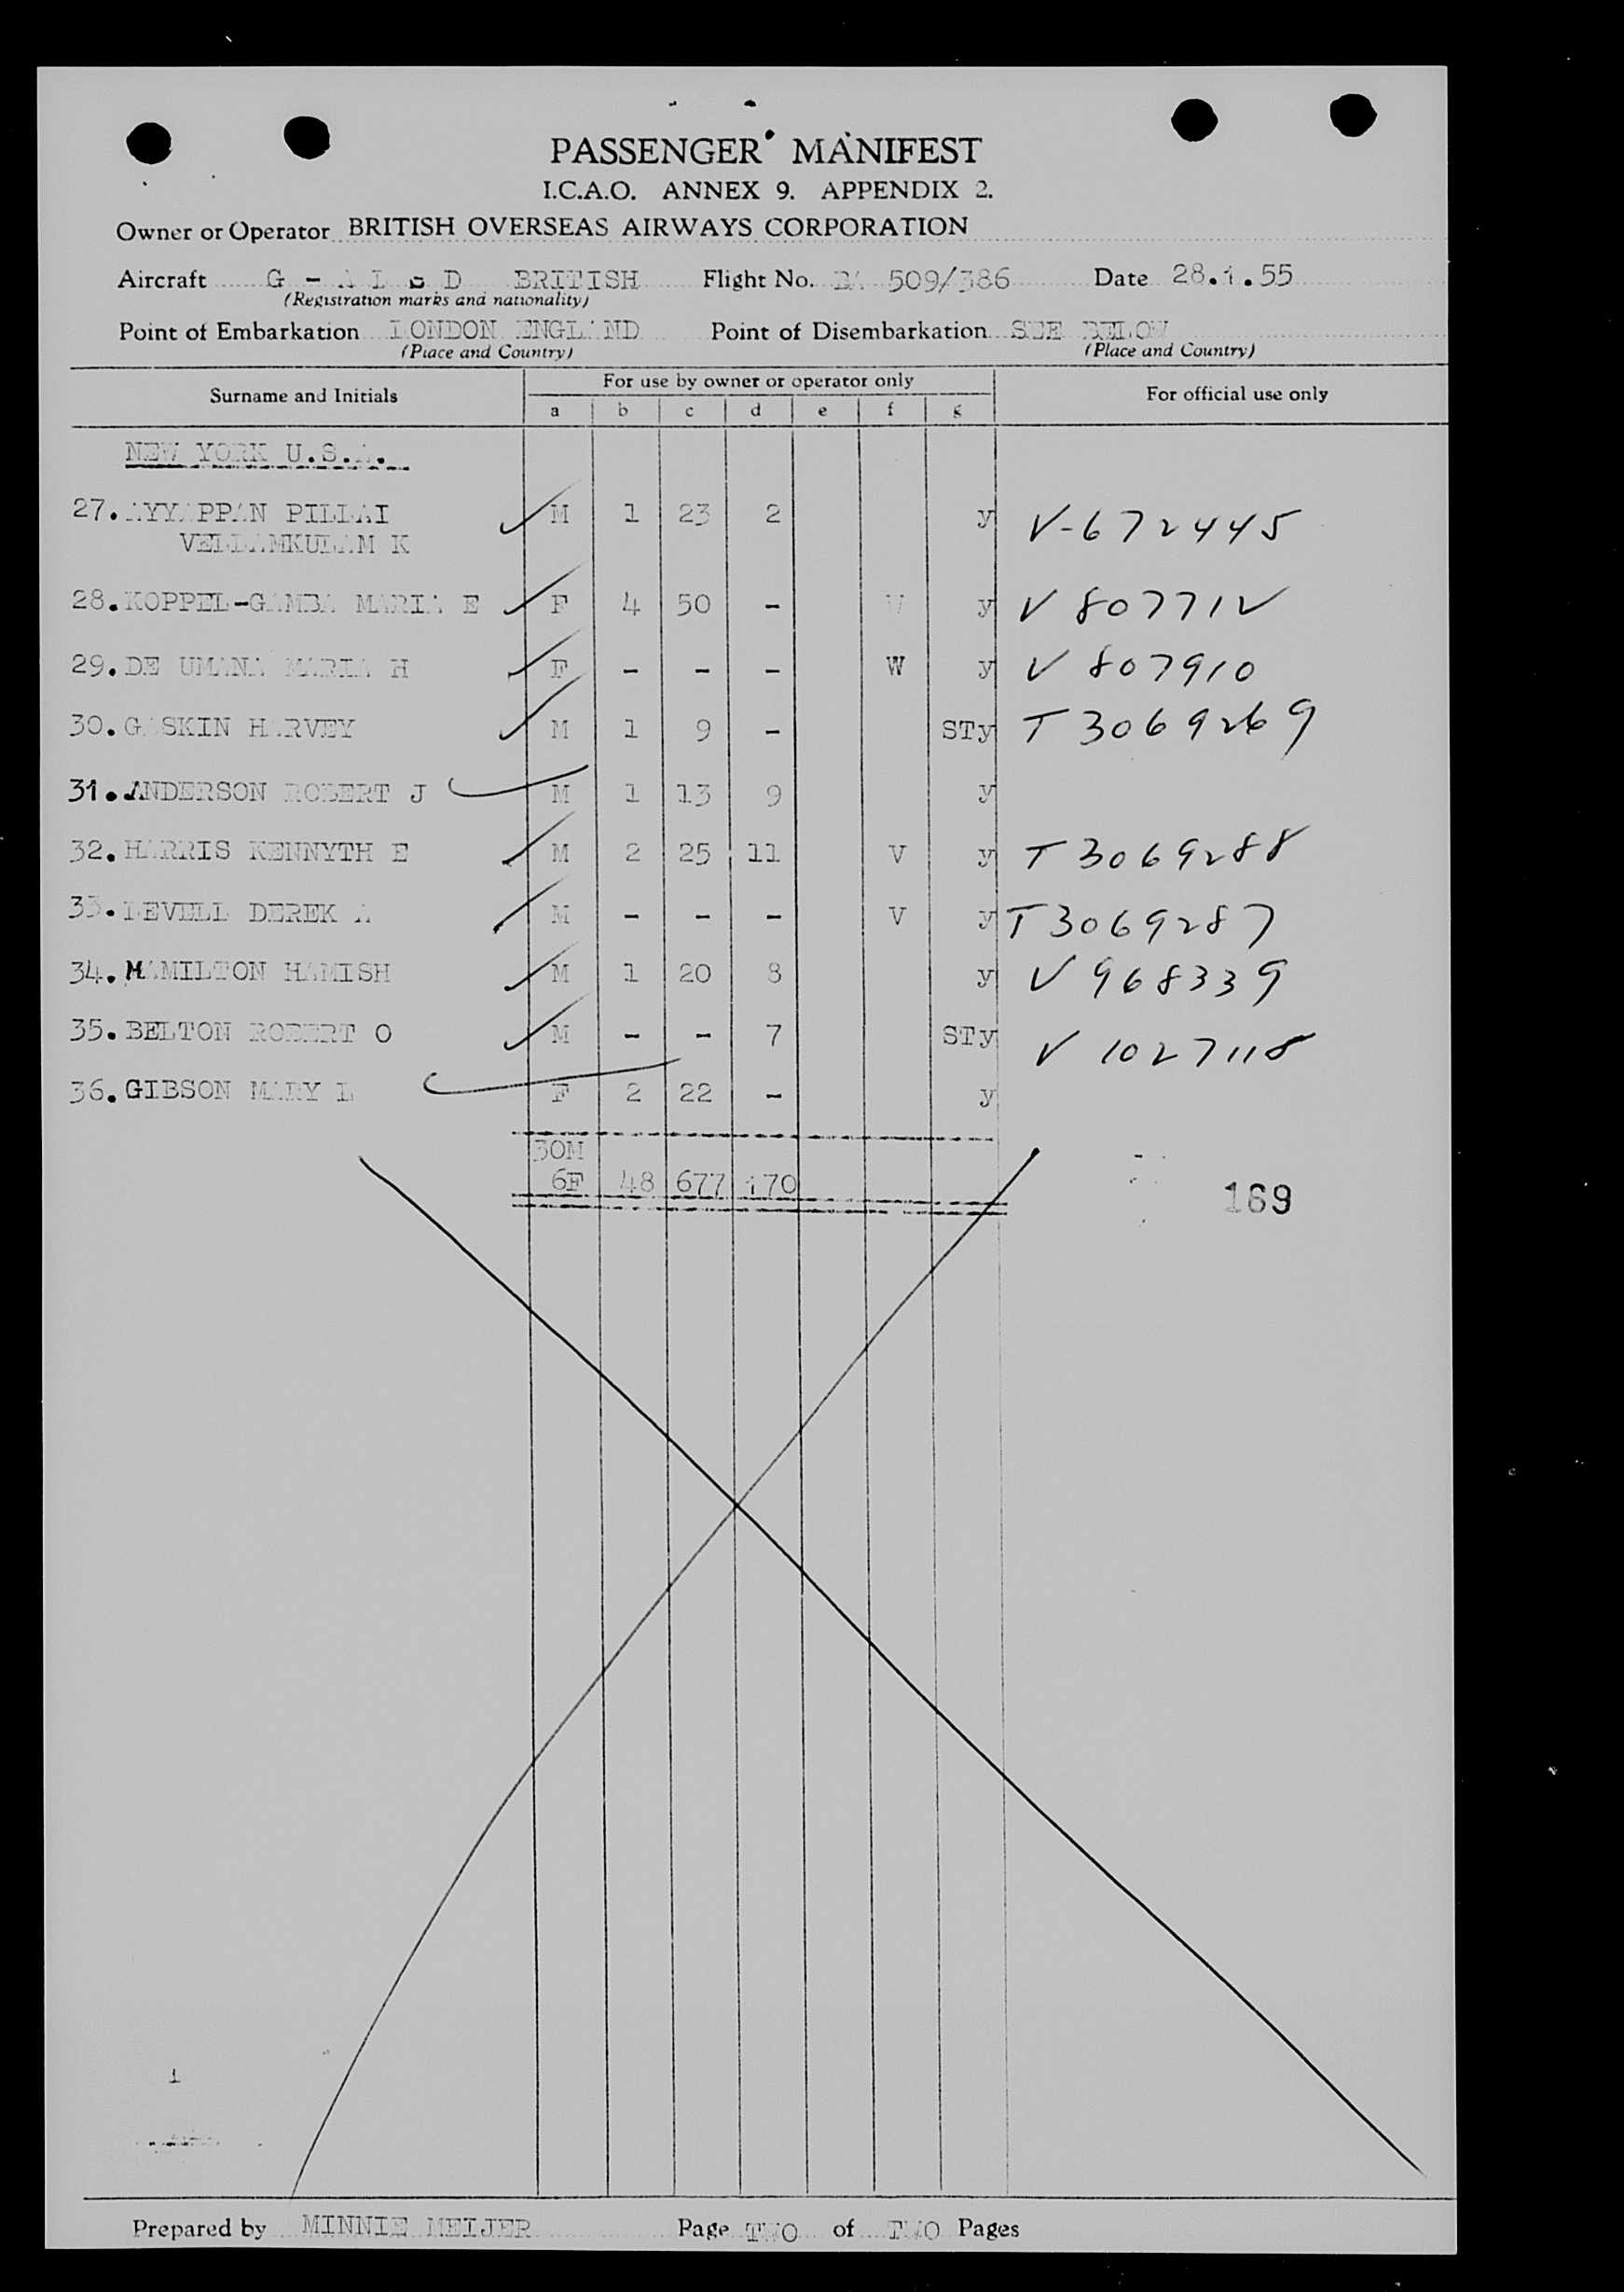 PASSENGER MANIFEST
I.C.A.O. ANNEX 9. APPENDIX 2.
Owner or Operator BRITISH OVERSEAS AIRWAYS CORPORATION
Aircraft G - A L S D BRITISH Flight No. BA 509/386 Date 28.1.55
(Registration marks and nationality)
Point of Embarkation LONDON ENGLAND Point of Disembarkation SEE BELOW
(Place and Country) (Place and Country)
Surname and Initials For use by owner or operator only For official use only
a b c d e f g
NEW YORK U.S.A.
27. AYYAPPAN PILLAI M 1 23 2 y V-672445
VELLAMKULAM K
28. KOPPEL-GAMBA MARIA E F 4 50 - y V 807712
29. DE UMANA MARIA H F - - - W y V 807910
30. GASKIN HARVEY M 1 9 - STy T 3069269
31. ANDERSON ROBERT J M 1 13 9 y
32. HARRIS KENNYTH E M 2 25 11 V y T 3069288
33. LEVELL DEREK A M - - - V y T3069287
34. HAMILTON HAMISH M 1 20 8 y V 968339
35. BELTON ROBERT O M - - 7 STy V 1027118
36. GIBSON MARY L F 2 22 - y
30M
6F 48 677 170
169
Prepared by MINNIE MEIJER Page TWO of TWO Pages